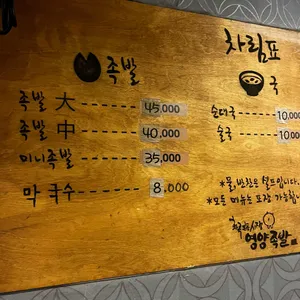 차림표
족발
족발 大 ------ 45,000
족발 中 ------ 40,000
미니족발 ---- 35,000
막국수 ------ 8.000
국
순대국 ---- 10,000
술국 ------ 10,00
*물,반찬은 셀프입니다.
*모든 메뉴는 포장 가능합니
영양족발